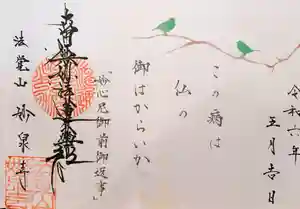 令和六年
五月吉日
この病は
仏の
御はからいか
「妙心尼御前御返事」
法登山 妙泉寺